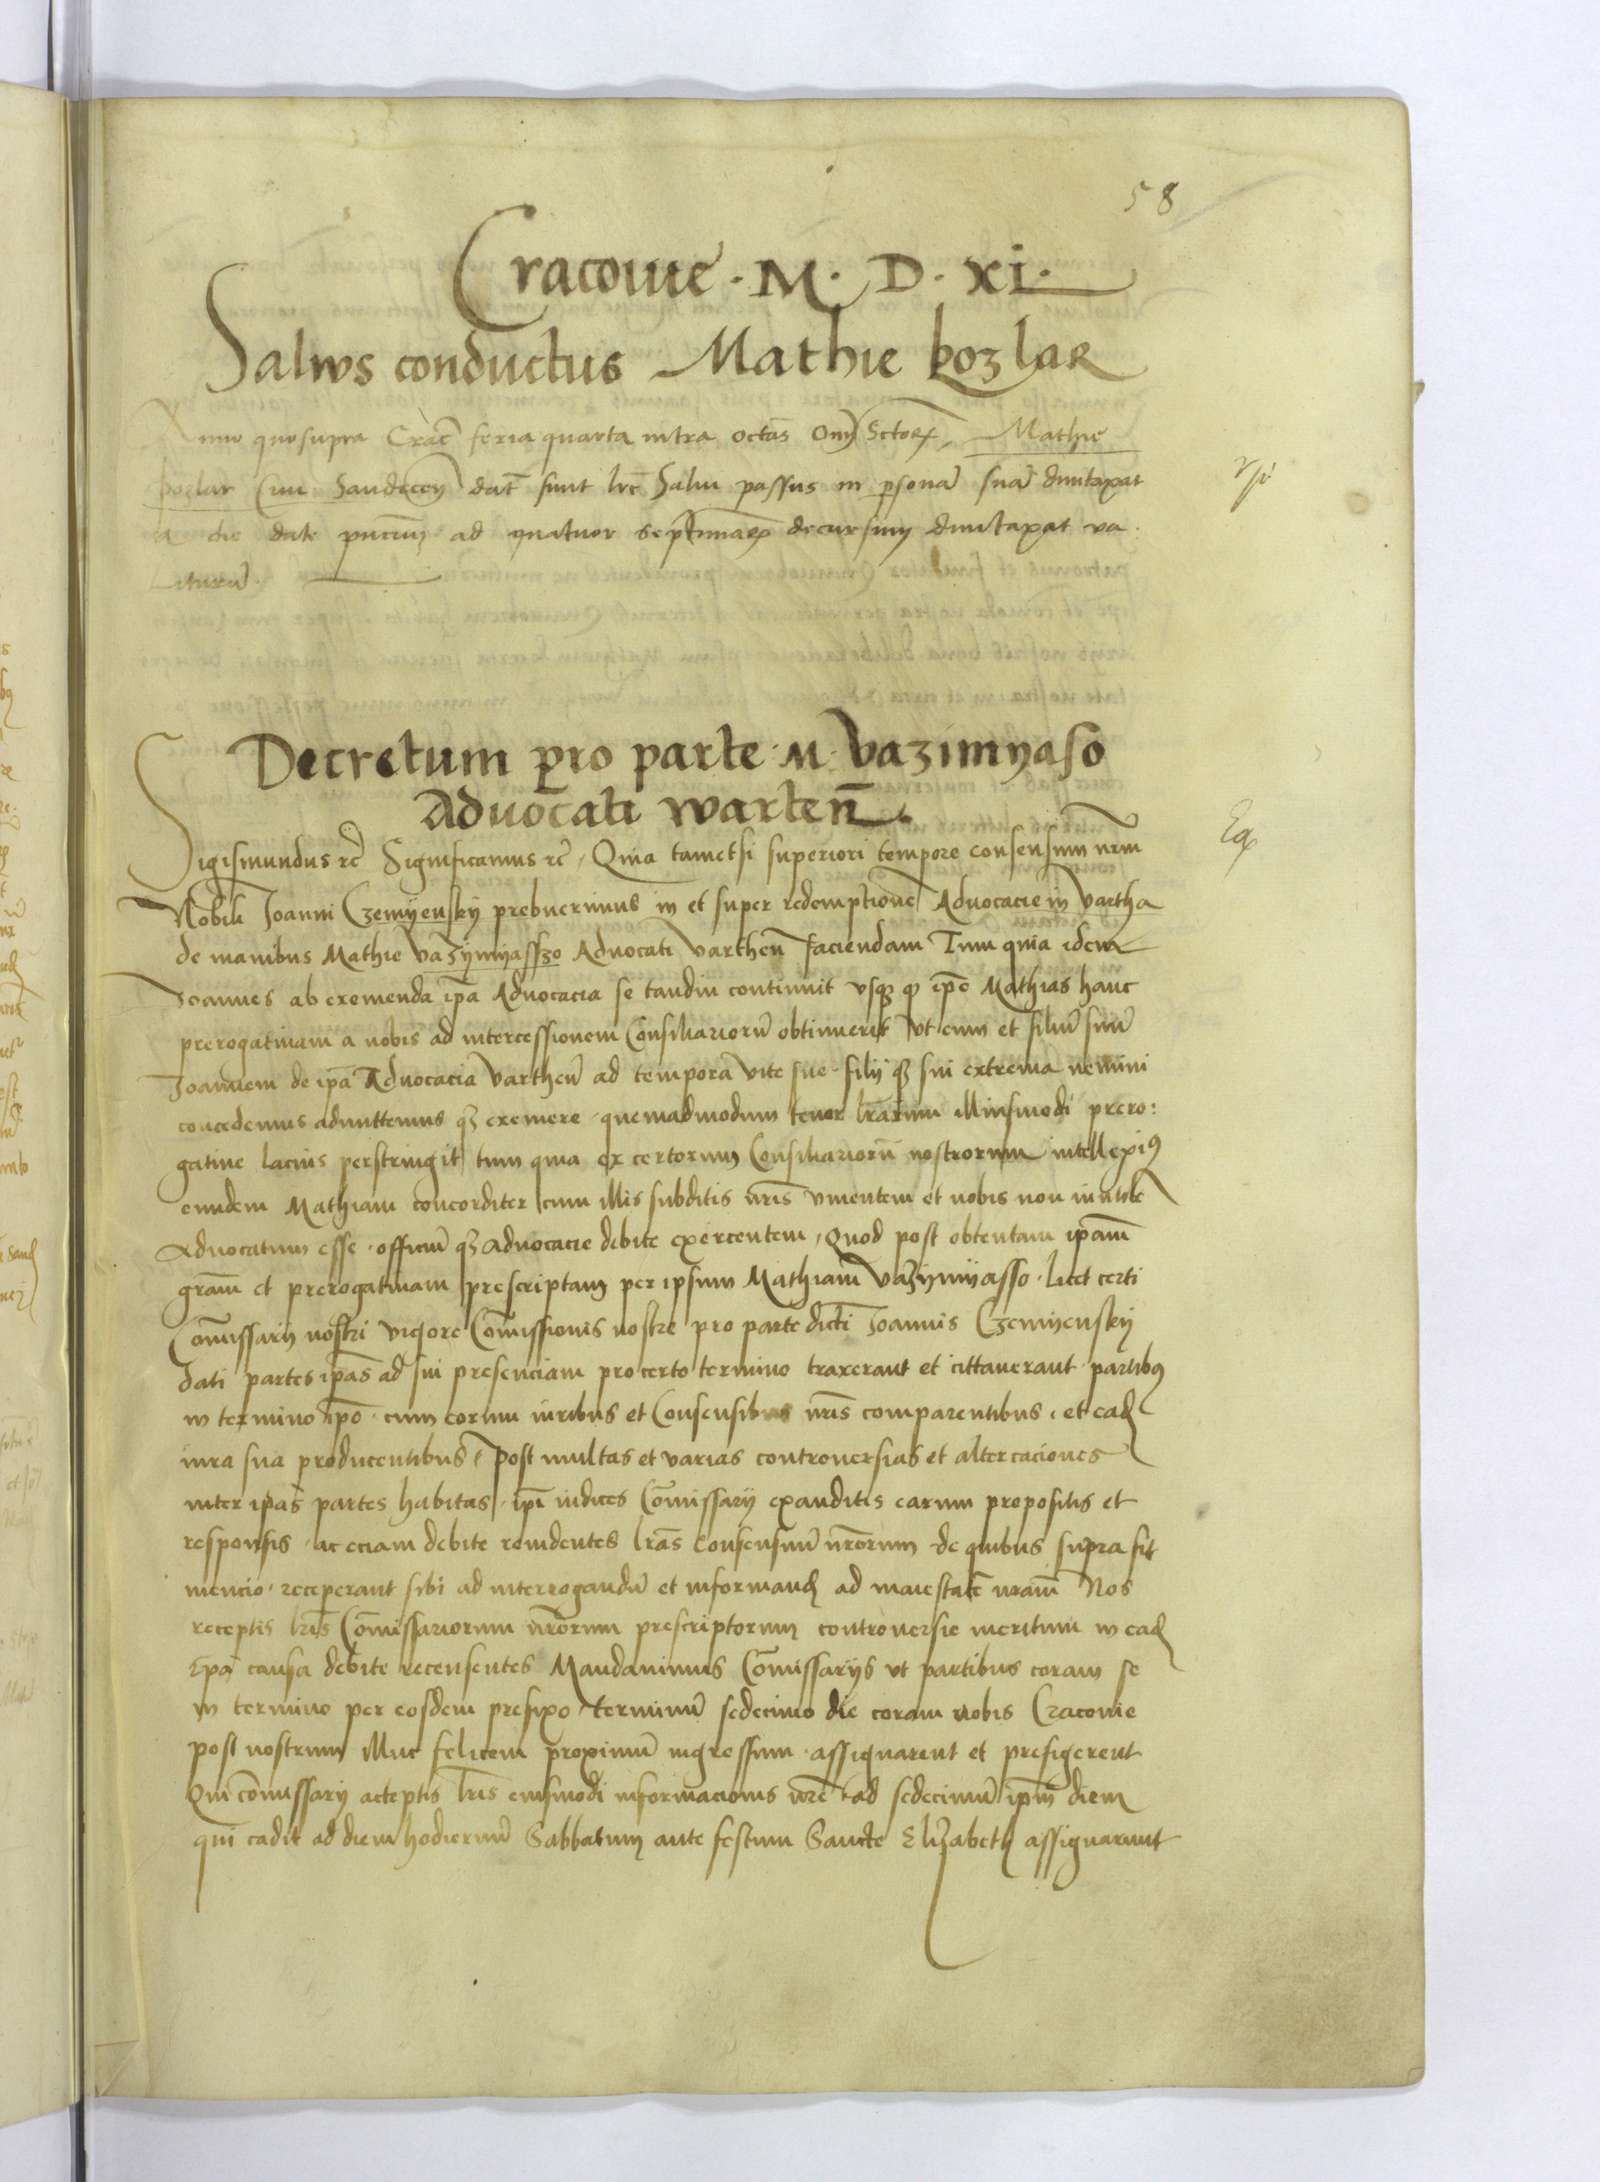 58
Cracouie · M · D · XI ·
Salws conductus Mathie kozlar
Anno quo supra Crac feria quarta intra octas Om Sctorum Mathie
kozlar Ciui Sandecen dat sunt lre Salui passus in personã suã duntaxat
a die date pntium ad quatuor septimanarum decursum duntaxat va
liturũ
Decretum pro parte · M · vazimyaso
Aduocati warteñ
Sigismundus rc Significamus rc Quia tametsi superiori tempore consensum nrm
Nobili Joanni Czemyensky prebuerimus in et super redemptione Aduocacie in vartha
de manibus Mathie vazymyasszo Aduocati vartheñ faciendam Tum quia idem
Joannes ab exemenda ipa Aduocacia se tandiu continuit vsque quo ipe Mathias hanc
prerogatiuam a nobis ad intercessionem Consiliariorũ obtinuerit vt eum et filiũ suũ
Joannem de ipa Aduocacia vartheñ ad tempora vite sue filij que sui extrema nemini
concedemus admittemus que exemere quemadmodum tenor lrarum illiusmodi prero:
gatiue lacius perstringit tum quia ex certorum Consiliariorũ nostrorum intelleximus
eundem Mathiam concorditer cum illis subditis nris viuentem et nobis non inutilẽ
Aduocatum esse officiũ que aduocacie debite exercentem Quod post obtentam ipam
gram et prerogatiuam prescriptam per ipsum Mathiam vazymyasso licet certi
Comissarij nostri vigore Comissionis nostre pro parte dicti Joannis Czemyensky
dati partes ipas ad sui presenciam pro certo termino traxerant et cittauerant partibus
in termino ipo cum eorum iuribus et Consensibus nris comparentibus et ead
iura sua producentibus Post multas et varias controuersias et altercaciones
inter ipas partes habitas ipi iudices Comissarij exauditis earum propositis et
responsis ac eciam debite reuidentes lras consensuũ nrorum de quibus supra fit
mencio receperant sibi ad interrogandũ et informand ad maiestatẽ nram Nos
receptis lris Comissariorum nrorum prescriptorum controuersie meritum in ead
ipa causa debite recensentes Mandauimus Comissarijs vt partibus coram se
in termino per eosdem prefixo terminũ sedecimo die coram nobis Cracouie
post nostrum illuc felicem proximũ ingressum assignarent et prefigerent
Qui comissarij acceptis lris eiusmodi informacionis nre ad sedecimũ ipm diem
qui cadit ad diem hodiernũ Sabbatum ante festum Sancte Elizabeth assignarunt